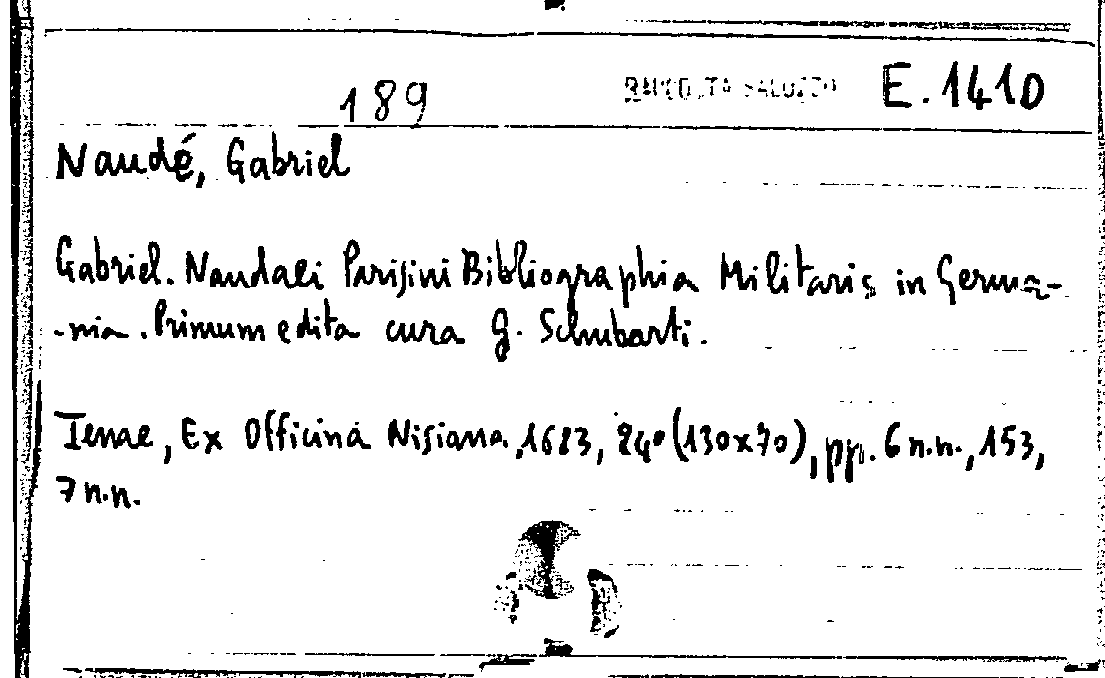 189 RACCOLTA SALUZZO E.1410
Naudé, Gabriel
Gabriel. Naudaei Parisini Bibliographia Militaris in Germa-
-nia. Primum edita cura G. Schubarti.
Ienae, Ex Officina Nisiana, 1683, 24° (130x70), pp. 6 n.n., 153,
7 n.n.